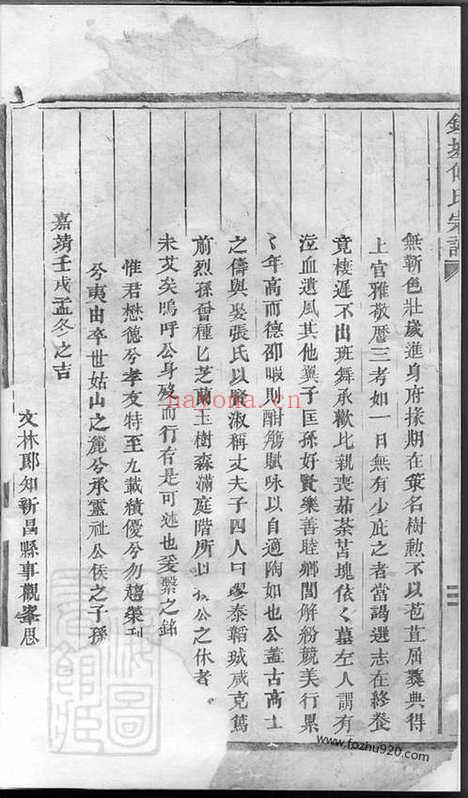 何氏宗譜
無靳色壯歲進身府掾期在策名樹勲不以苞苴屈彝典得
上官雅敬曆三考如一日無有少庛之者當謁選志在終養
竟棲遲不出班舞承歡比親喪茹荼苫塊依〻墓左人謂有
泣血遺風其他翼子匡孫好賢樂善睦鄉閭解紛競美行果
〻年高而德卲暇則酣觴賦咏以自適陶如也公蓋古高士
之儔與娶張氏以賢淑稱丈夫子四人曰璆泰韜珹咸克篤
前烈孫曾種〻芝蘭玉樹森滿庭階所以 公之休者
未艾矣嗚呼公身殁而行有是可述也爰繫之銘
惟君懋德兮孝友特至九載績優兮勿趨榮利
兮夷由卒世姑山之麓兮承靈祉公侯之子孫
嘉靖壬戌孟冬之吉
文林郎知新昌縣事觀峯思
nayona.cn
www.fozhu920.com